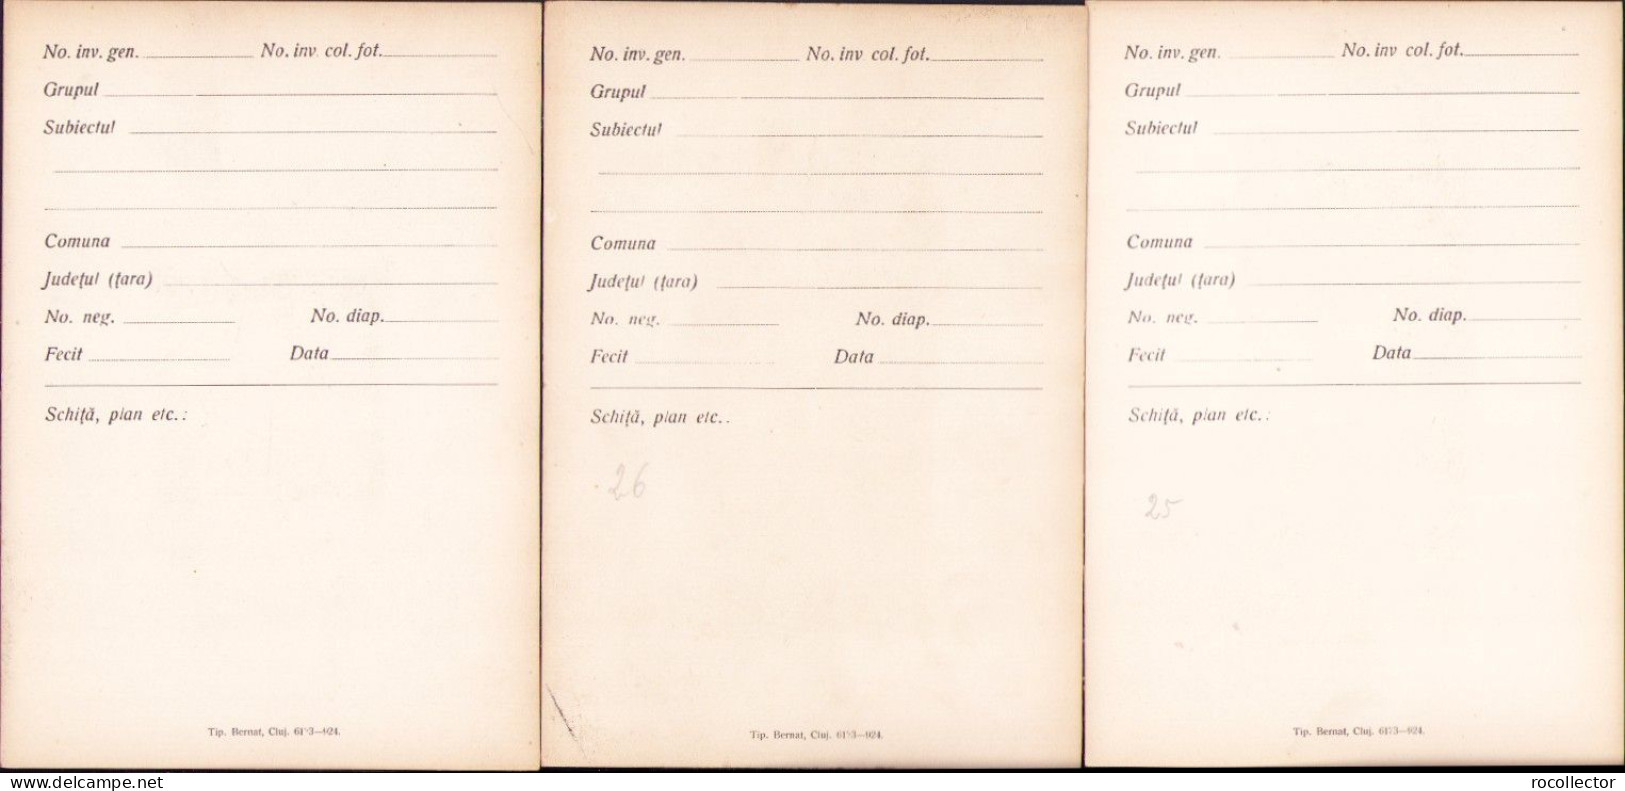 No. inv. gen. No. inv. col. fot.
Grupul
Subiectul
Comuna
Județul (țara)
No. neg. No. diap.
Fecit Data
Schiță, plan etc.:
Tip. Bernat, Cluj.
No. inv. gen. No. inv col. fot.
Grupul
Subiectul
Comuna
Județul (țara)
No. neg. No. diap.
Fecit Data
Schiță, plan etc..
26
Tip. Bernat, Cluj.
No. inv. gen. No. inv col. fot.
Grupul
Subiectul
Comuna
Județul (țara)
No. neg. No. diap.
Fecit Data
Schiță, plan etc.:
25
Tip. Bernat, Cluj.
www.delcampe.net
rocollector